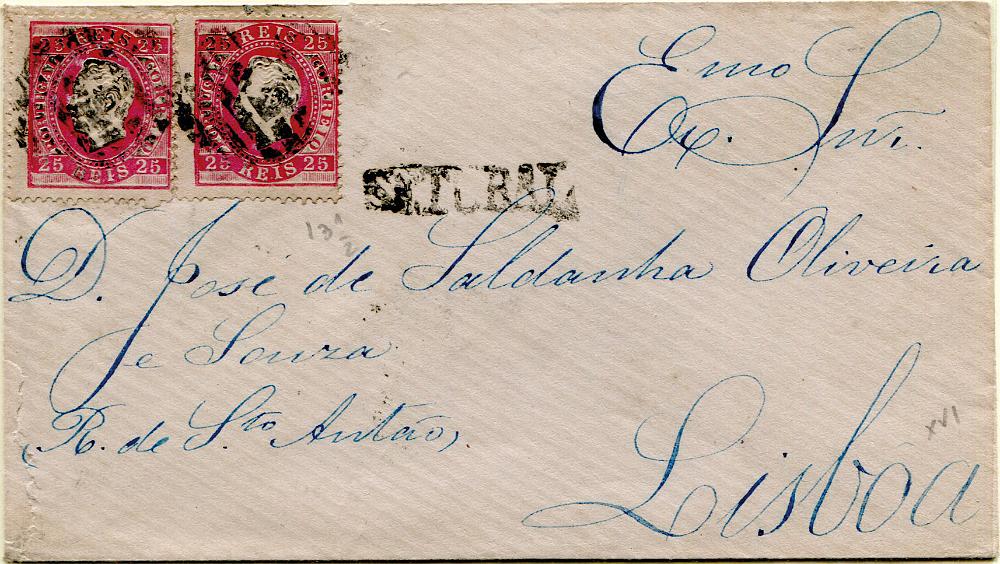 25 REIS 25
CORREIO
25 REIS 25
25 REIS 25
CORREIO
25 REIS 25
SETUBAL
13 1/2
Emo Snr.
Ex.
D. José de Saldanha Oliveira
e Souza
R. de Sto Antão,
Lisboa
XVI